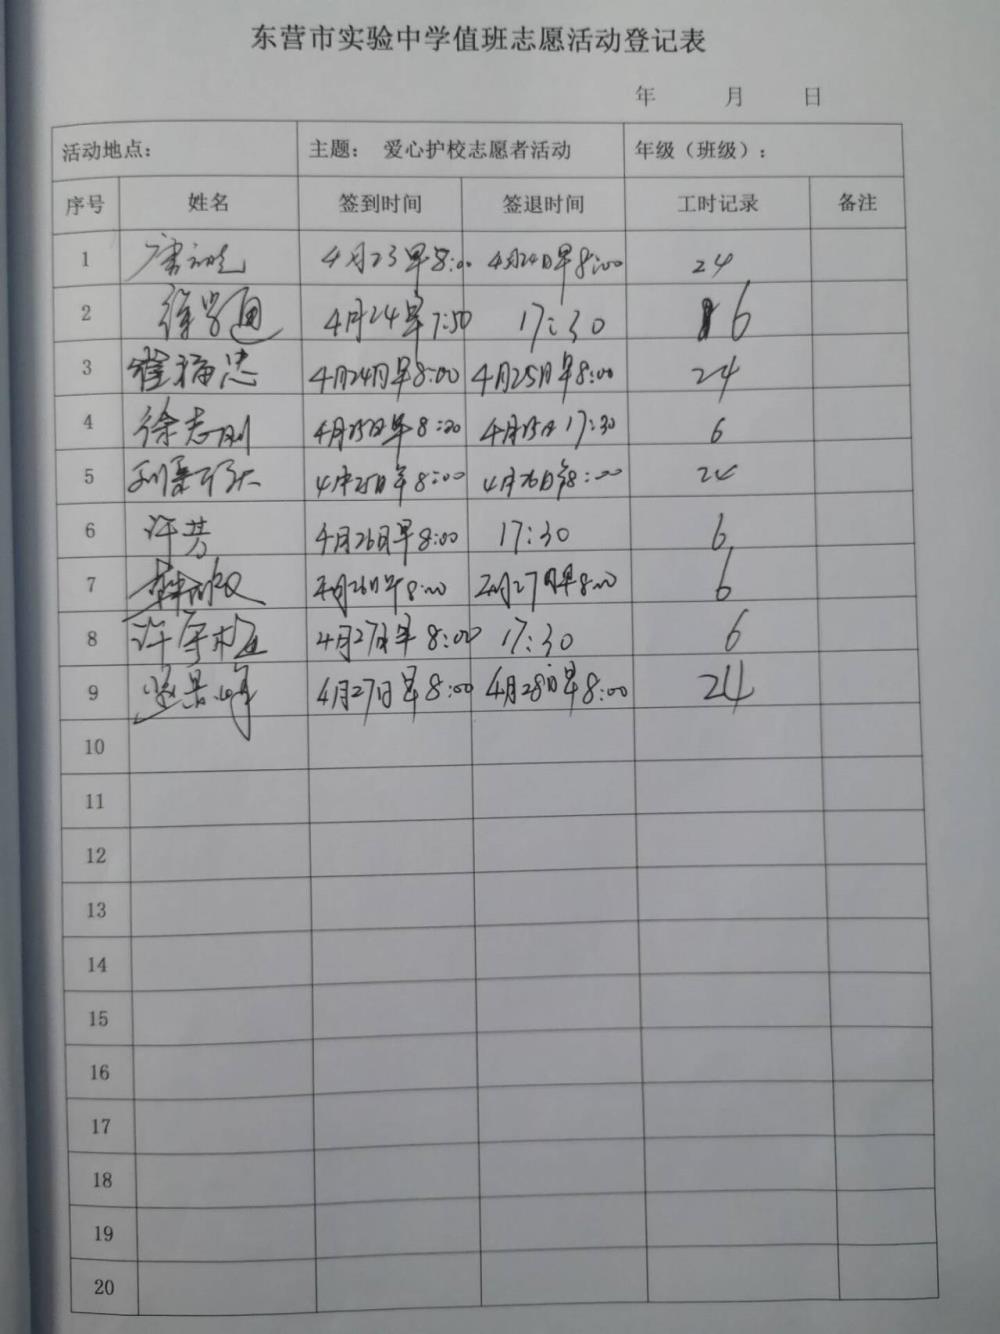 东营市实验中学值班志愿活动登记表
年 月 日
活动地点: 主题: 爱心护校志愿者活动 年级（班级）:
序号 姓名 签到时间 签退时间 工时记录 备注
1 4月23早8:00 4月24日早8:00 24
2 徐学通 4月24早7:50 17:30 6
3 崔福忠 4月24日早8:00 4月25日早8:00 24
4 徐志刚 4月25日早8:00 4月25日17:30 6
5 4月25日早8:00 4月26日早8:00 24
6 许芳 4月26日早8:00 17:30 6
7 4月26日早8:00 4月27日早8:00 6
8 4月27日早8:00 17:30 6
9 4月27日早8:00 4月28日早8:00 24
10
11
12
13
14
15
16
17
18
19
20